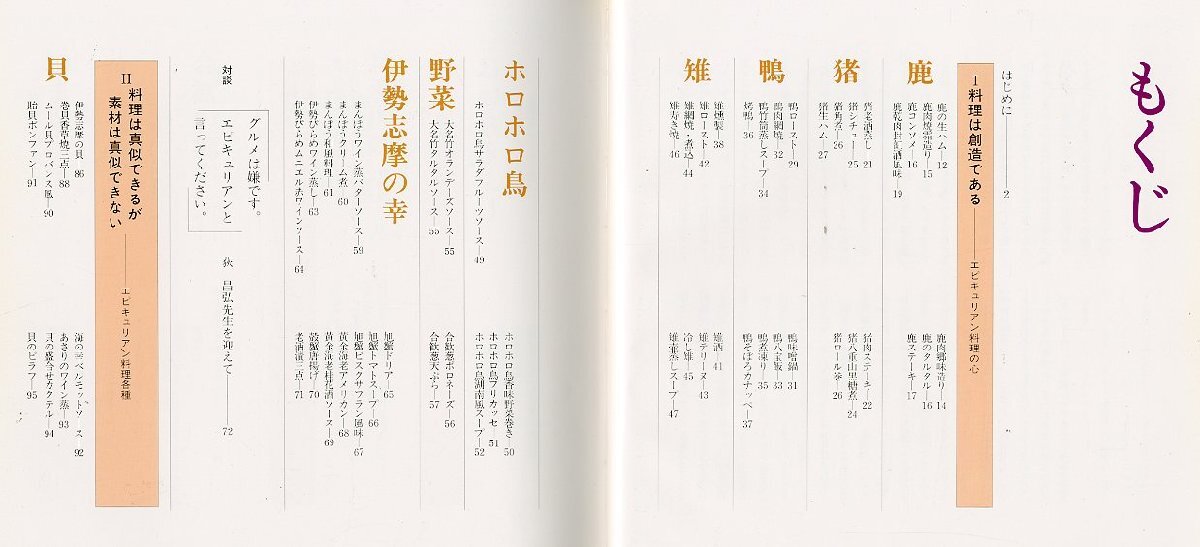 もくじ
はじめに――2
I 料理は創造である――エピキュリアン料理の心
鹿
鹿の生ハム―12
鹿肉燒霜造り―15
鹿コンソメ―16
19
鹿肉郷味造り―14
鹿のタルタル―16
鹿ステーキ―17
猪
猪老酒蒸し―21
猪シチュー―25
猪角煮―26
猪生ハム―27
猪肉ステーキ―22
猪八重山黒糖煮―24
猪ロール拳―26
鴨
鴨ロースト―29
鴨肉網焼―32
鴨竹筒蒸しスープ―34
焼鴨―36
鴨味噌鍋―31
鴨八宝飯―33
鴨煮凍り―35
鴨そぼろカナッペ―37
雉
雉燻製―38
雉ロースト―42
雉網焼・煮込―44
雉寿き焼―46
雉酒―41
雉テリーヌ―43
冷し雉―45
雉壷蒸しスープ―47
ホロホロ鳥
ホロホロ鳥サラダフルーツソース―49
ホロホロ鳥香味野菜巻き―50
ホロホロ鳥フリカッセ―51
ホロホロ鳥湖南風スープ―52
野菜
大名竹オランデーズソース―55
大名竹タルタルソース―55
合歓葱ボロネーズ―56
合歓葱天ぷら―57
伊勢志摩の幸
まんぼうワイン蒸バターソース―59
まんぼうクリーム煮―60
まんぼう和風料理―61
伊勢ひらめワイン蒸し―63
伊勢ひらめムニエル赤ワインソース―64
旭蟹ドリア―65
旭蟹トマトスープ―66
旭蟹ビスクサフラン風味―67
黄金海老アメリカン―68
黄金海老桂花酒ソース―69
殻蟹唐揚げ―70
老酒漬三点―71
対談
グルメは嫌です。
エピキュリアンと
言ってください。
狄 昌弘先生を迎えて――72
II 料理は真似できるが
素材は真似できない――エピキュリアン料理各種
貝
伊勢志摩の貝―86
巻貝香草焼三点―88
ムール貝プロバンス風―90
貽貝ボンファン―91
ベルモットソース―92
あさりのワイン蒸―93
貝の盛合せカクテル―94
貝のピラフ―95